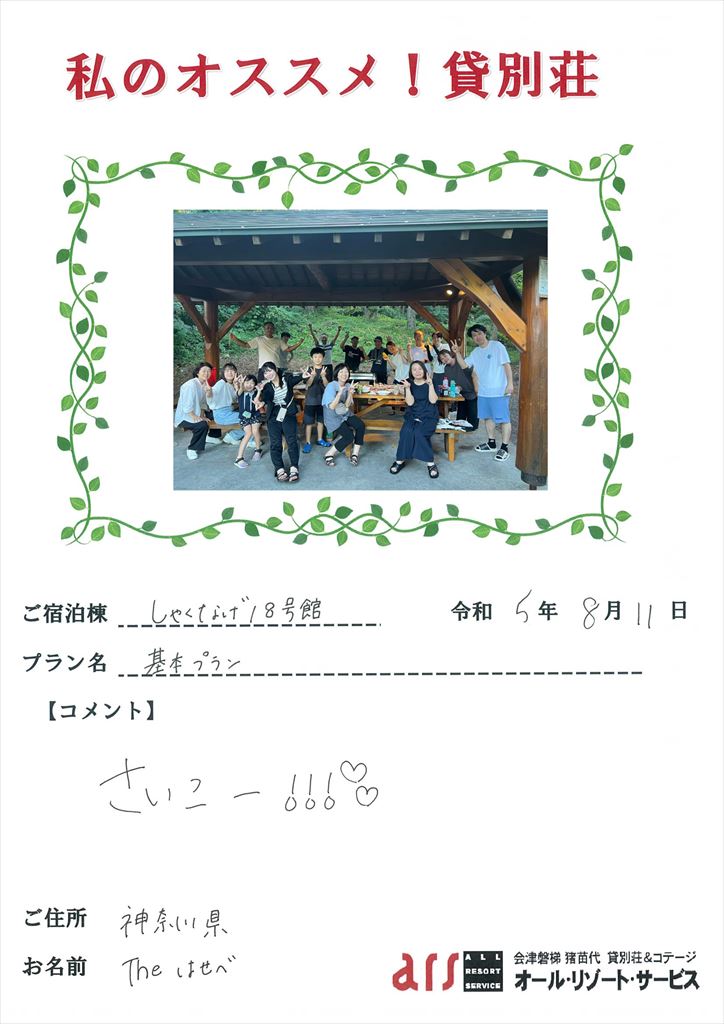 私のオススメ！貸別荘
ご宿泊棟 しゃくなげ18号館 令和 5年 8月 11日
プラン名 基本プラン
【コメント】
さいこー!!!♡♡
ご住所 神奈川県
お名前 The はせべ
ars ALL RESORT SERVICE 会津磐梯 猪苗代 貸別荘&コテージ
オール・リゾート・サービス